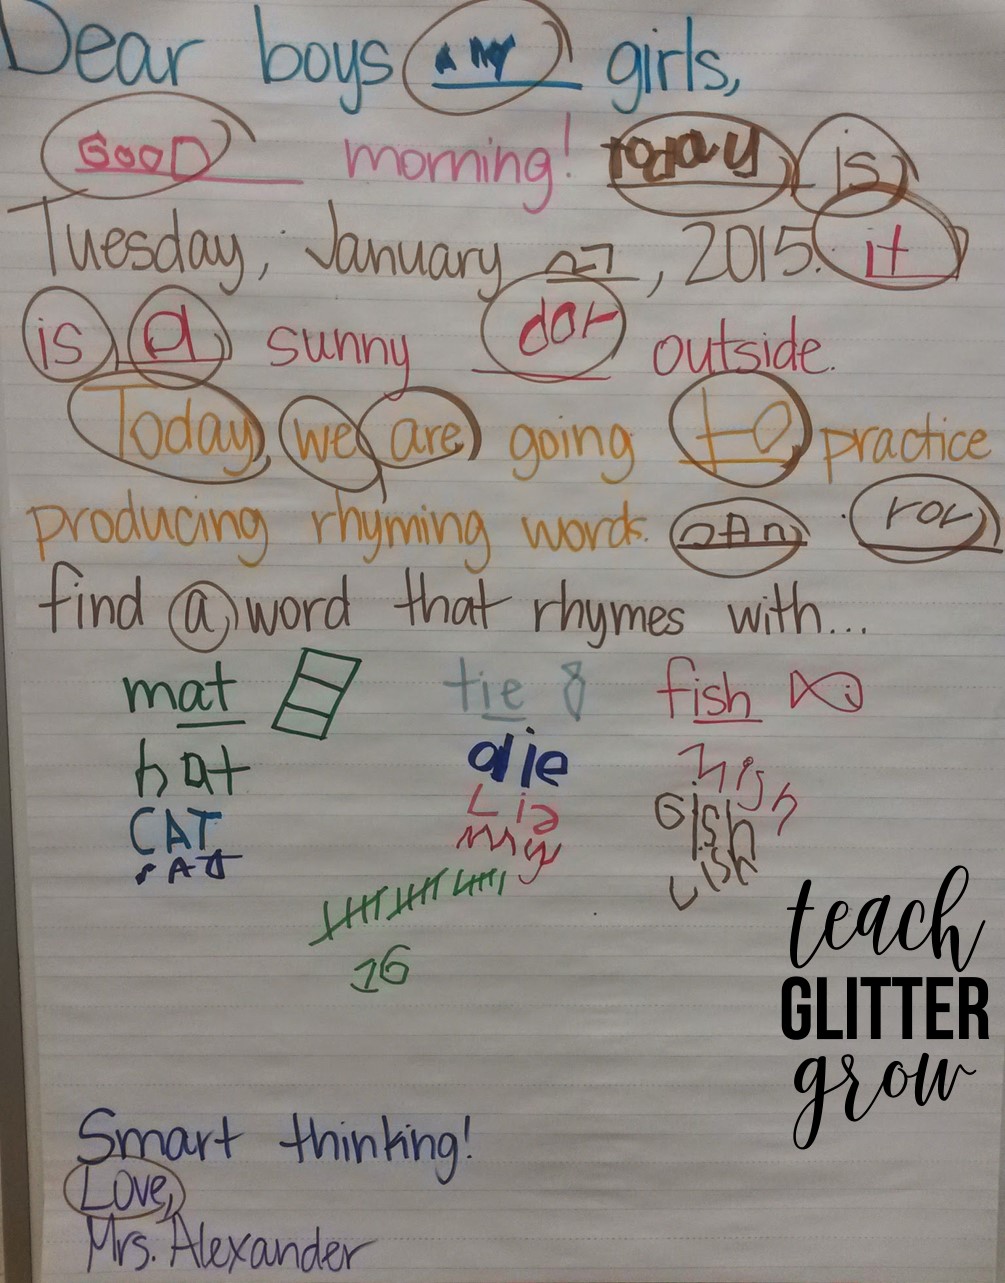 Dear boys girls,
GooD morning! today is
Tuesday, January 27, 2015. it
is a sunny dor outside.
Today, we are going to practice
producing rhyming words. cAn roy
find a word that rhymes with...
mat tie fish
hat die hish
CAT Lia Gish
rAt my Lish
16
teach
GLITTER
grow
Smart thinking!
Love,
Mrs. Alexander